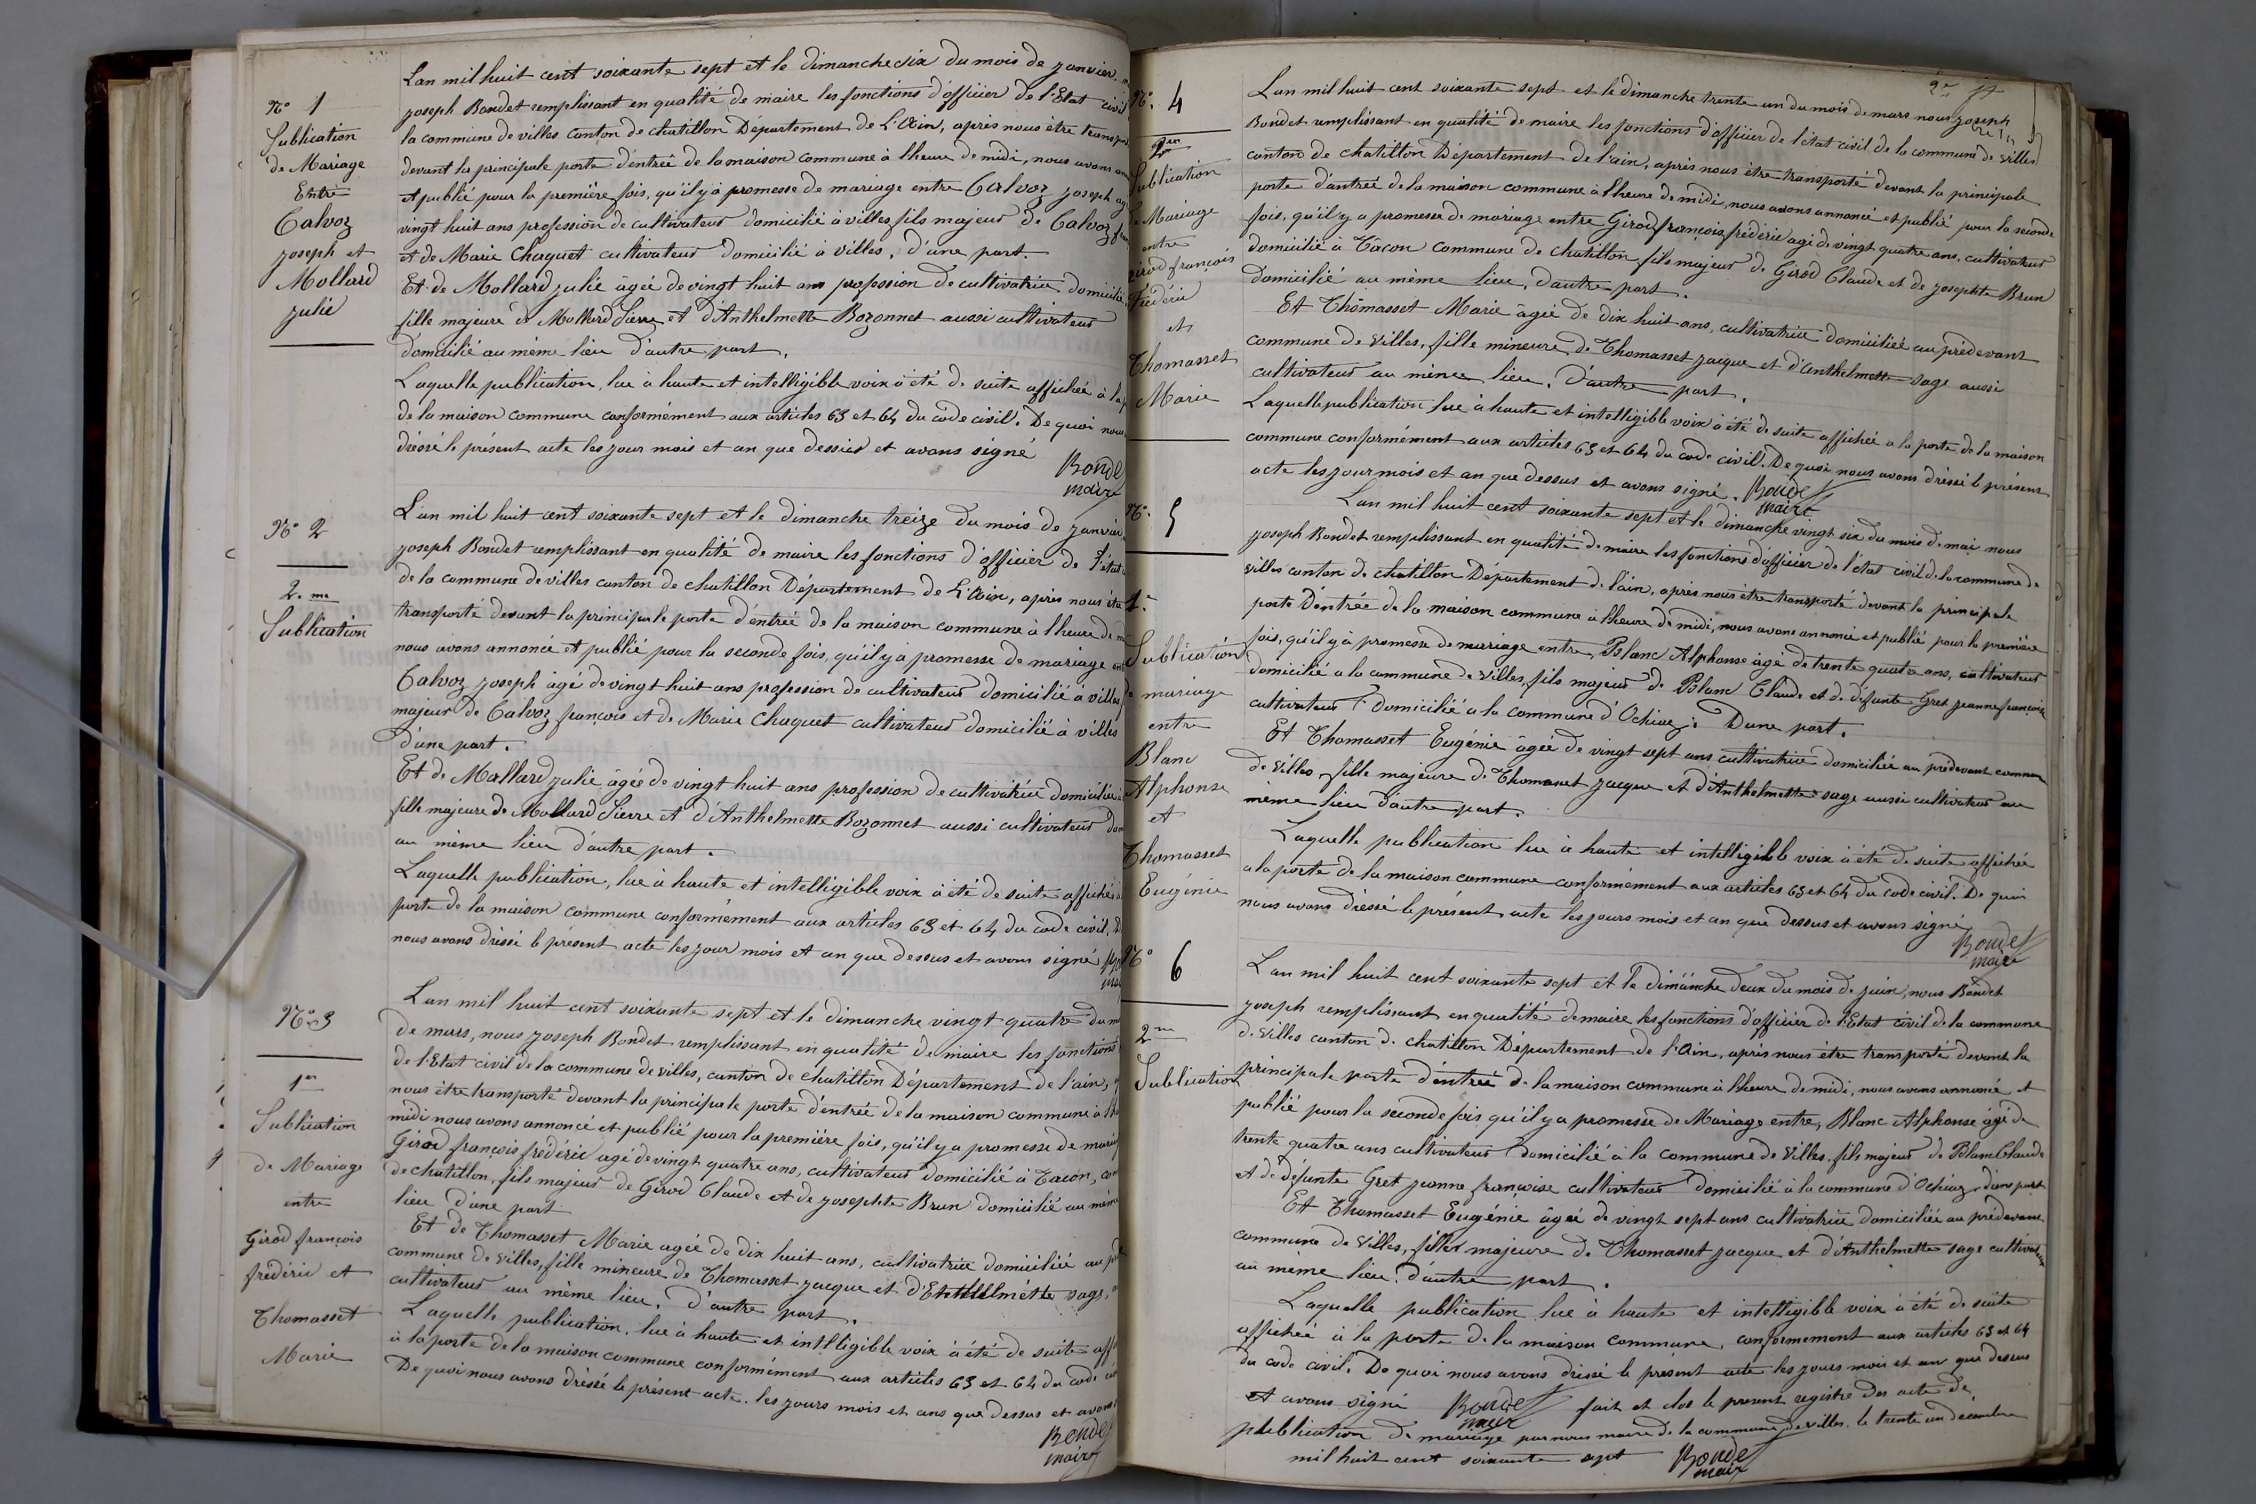 N° 1
Publication
de Mariage
Entre
Calvoz
joseph et
Mollard
julie
L'an mil huit cent soixante sept et le dimanche six du mois de janvier
joseph Bondet remplissant en qualité de maire les fonctions d'officier de l'Etat civil
la commune de villes canton de chatillon Département de L'Ain, après nous être transpor
devant la principale porte d'entrée de la maison commune à l'heure de midi, nous avons ann
et publié pour la première fois, qu'il y a promesse de mariage entre Calvoz joseph ag
vingt huit ans profession de cultivateur domicilié à villes fils majeur de Calvoz fran
et de Marie Chaquet cultivateur domicilié à villes, d'une part.
Et de Mollard julie âgée de vingt huit ans profession de cultivatrice domicilié
fille majeure de Mollard Pierre et d'Anthelmette Bozonnet aussi cultivateur
domicilié au même lieu d'autre part.
Laquelle publication, lue à haute et intelligible voix à été de suite affichée à la p
de la maison commune conformément aux articles 63 et 64 du code civil. De quoi nous
dressé le présent acte les jour mois et an que dessus et avons signé
Bondet
maire
N° 2
2.me
Publication
L'an mil huit cent soixante sept et le dimanche treize du mois de janvier
joseph Bondet remplissant en qualité de maire les fonctions d'officier de l'état
de la commune de villes canton de chatillon Département de L'Ain, après nous être
transporté devant la principale porte d'entrée de la maison commune à l'heure de m
nous avons annoncé et publié pour la seconde fois, qu'il y a promesse de mariage ent
Calvoz joseph âgé de vingt huit ans profession de cultivateur domicilié à villes
majeur de Calvoz françois et de Marie Chaquet cultivateur domicilié à villes
d'une part.
Et de Mollard julie âgée de vingt huit ans profession de cultivatrice domiciliée
fille majeure de Mollard Pierre et d'Anthelmette Bozonnet aussi cultivateur dom
au même lieu d'autre part.
Laquelle publication, lue à haute et intelligible voix à été de suite affichée
porte de la maison commune conformément aux articles 63 et 64 du code civil, D
nous avons dressé le présent acte les jour mois et an que dessus et avons signé Bo
mai
N° 3
1er
Publication
de Mariage
entre
Girod françois
frédéric et
Thomasset
Marie
L'an mil huit cent soixante sept et le dimanche vingt quatre du m
de mars, nous joseph Bondet remplissant en qualité de maire les fonctions
de l'Etat civil de la commune de villes, canton de chatillon Département de l'ain,
nous être transporté devant la principale porte d'entrée de la maison commune à l'he
midi nous avons annoncé et publié pour la première fois, qu'il y a promesse de mariag
Girod françois frédéric agé de vingt quatre ans, cultivateur domicilié à Tacon, com
de chatillon, fils majeur de Girod Claude et de josephte Brun domicilié au même
lieu d'une part
Et de Thomasset Marie agée de dix huit ans, cultivatrice domiciliée au pré
commune de villes, fille mineure de Thomasset jacque et d'Enthelmette sage,
cultivateur au même lieu, d'autre part.
Laquelle publication, lue à haute et intelligible voix à été de suite affi
à la porte de la maison commune conformément aux articles 63 et 64 du code ci
De quoi nous avons dressé le présent acte. les jours mois et ans que dessus et avons
Bondet
maire
N° 4
2me
Publication
de Mariage
entre
girod françois
Frédéric
et
Thomasset
Marie
L'an mil huit cent soixante sept et le dimanche trente un du mois de mars nous joseph
Bondet remplissant en qualité de maire les fonctions d'officier de l'état civil de la commune de villes
canton de chatillon Département de l'ain, après nous être transporté devant la principale
porte d'entrée de la maison commune à l'heure de midi, nous avons annoncé et publié pour la seconde
fois, qu'il y a promesse de mariage entre Girod françois frédéric agé de vingt quatre ans, cultivateur
domicilié à Tâcon commune de chatillon fils majeur de Girod Claude et de josephte Brun
domicilié au même lieu, d'autre part.
Et Thômasset Marie âgée de dix huit ans, cultivatrice domiciliée au prédevant
commune de Villes, fille mineure de Thomasset jacque et d'anthelmette sage aussi
cultivateur au même lieu, d'autre part.
Laquelle publication lue à haute et intelligible voix à été de suite affichée a la porte de la maison
commune conformément aux articles 63 et 64 du code civil. De quoi nous avons dressé le présent
acte les jour mois et an que dessus et avons signé. Bondet
maire
N° 5
1re
Publication
de mariage
entre
Blanc
Alphonse
et
Thomasset
Eugénie
L'an mil huit cent soixante sept et le dimanche vingt six du mois de mai nous
joseph Bondet remplissant en qualité de maire les fonctions d'officier de l'état civil de la commune de
villes canton de chatillon Département de l'ain, après nous être transporté devant la principale
porte D'entrée de la maison commune à l'heure de midi, nous avons annoncé et publié pour la première
fois, qu'il y à promesse de mariage entre, Blanc Alphonse âgé de trente quatre ans, cultivateur
domicilié a la commune de Villes, fils majeur de Blanc Claude et de défunte Gret jeanne françoise
cultivateur domicilié a la commune d'Ochiaz. D'une part.
Et Thomasset Eugénie âgée de vingt sept ans cultivatrice domiciliée au prédevant commune
de Villes fille majeure de Thomasset jacque et d'Anthelmette sage aussi cultivateur au
même lieu d'autre part.
Laquelle publication lue à haute et intelligible voix à été de suite affichée
a la porte de la maison commune conformément aux articles 63 et 64 du code civil. De quoi
nous avons dressé le présent acte les jours mois et an que dessus et avons signé
Bondet
maire
N° 6
2me
Publication
L'an mil huit cent soixante sept et le dimanche deux du mois de juin, nous Bondet
joseph remplissant en qualité de maire les fonctions d'officier de l'Etat civil de la commune
de Villes canton de chatillon Département de l'Ain, après nous être transporté devant la
principale porte d'entrée de la maison commune à l'heure de midi, nous avons annoncé et
publié pour la seconde fois qu'il y a promesse de Mariage entre, Blanc Alphonse âgé de
trente quatre ans cultivateur domicilié à la commune de Villes fils majeur de Blanc Claude
et de défunte Gret jeanne françoise cultivateur domicilié à la commune d'Ochiaz, d'une part
Et Thomasset Eugénie âgée de vingt sept ans cultivatrice domiciliée au prédevant
commune de Villes, fille majeure de Thomasset jacque et d'Anthelmette sage cultivateur
au même lieu, d'autre part.
Laquelle publication lue à haute et intelligible voix à été de suite
affichée à la porte de la maison commune, conformement aux articles 63 et 64
du code civil. De quoi nous avons dressé le présent acte les jours mois et an que dessus
et avons signé Bondet fait et clos le present registre des acte de
maire
publication de mariage par nous maire de la commune de villes. le trente un décembre
mil huit cent soixante sept Bondet
maire